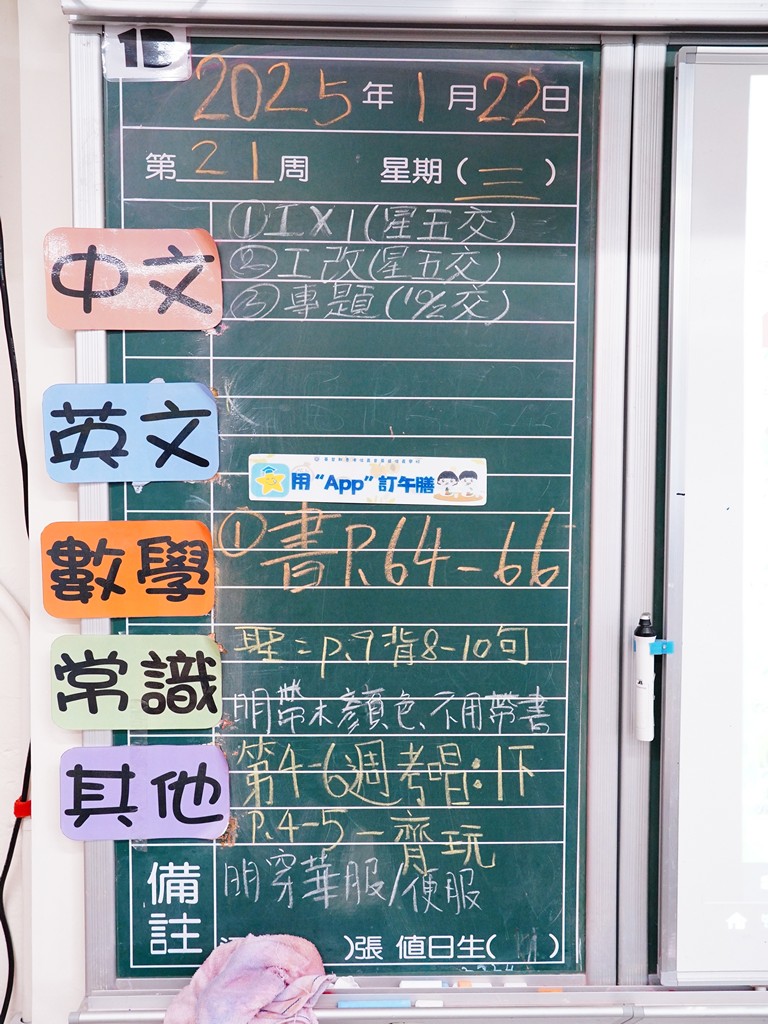 1D
2025年1月22日
第21周 星期(三)
中文
①工X1(星五交)
②工改(星五交)
③專題(10/2交)
英文
用“App”訂午膳
數學
①書P.64-66
常識
聖:p.9背8-10句
明帶木顏色、不用帶書
其他
第4-6週考唱:1下
P.4-5一齊玩
備註
明穿華服/便服
)張 值日生( )